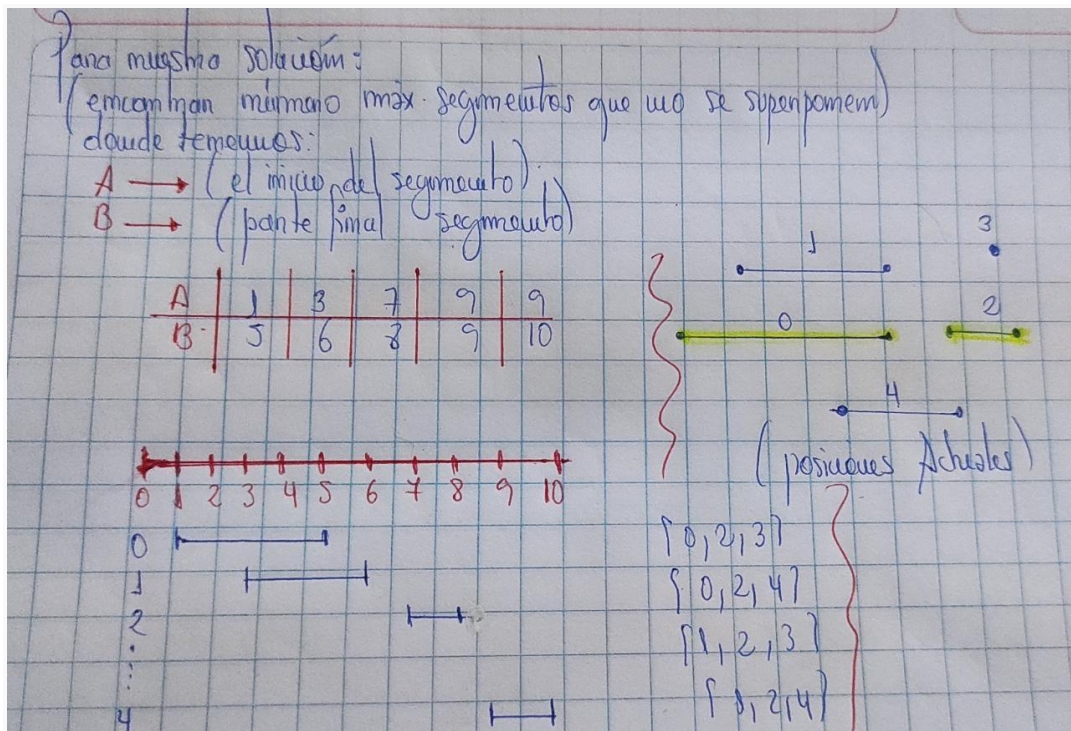 Para nuestra solución:
(encontrar número máx. segmentos que no se superponen)
donde tenemos:
A → (el inicio del segmento)
B → (parte final segmento)
A 1 3 7 9 9
B 5 6 8 9 10
0 1 2 3 4 5 6 7 8 9 10
0
1
2
4
3
1
0
2
4
(posiciones Actuales)
{0,2,3}
{0,2,4}
{1,2,3}
{1,2,4}